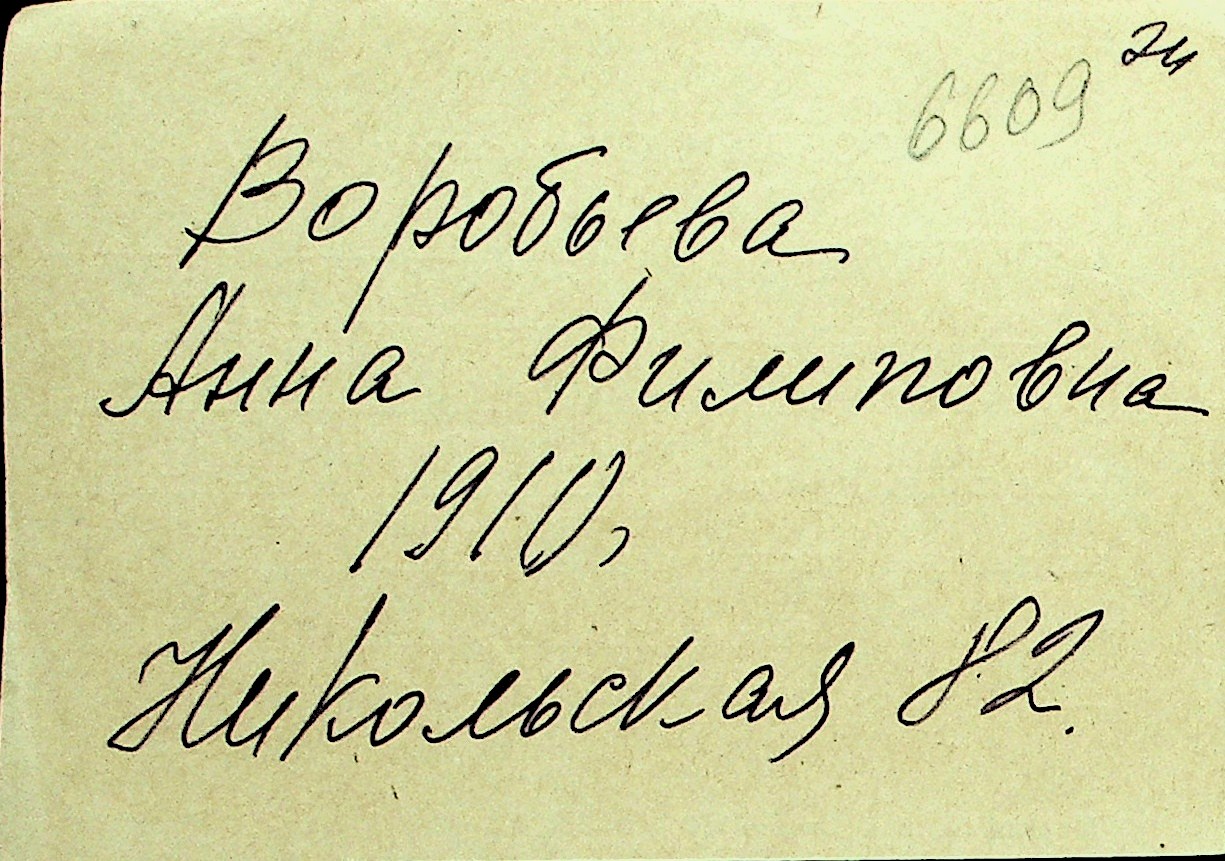 6609
Воробьева
Анна Филиповна
1910,
Никольская 82.